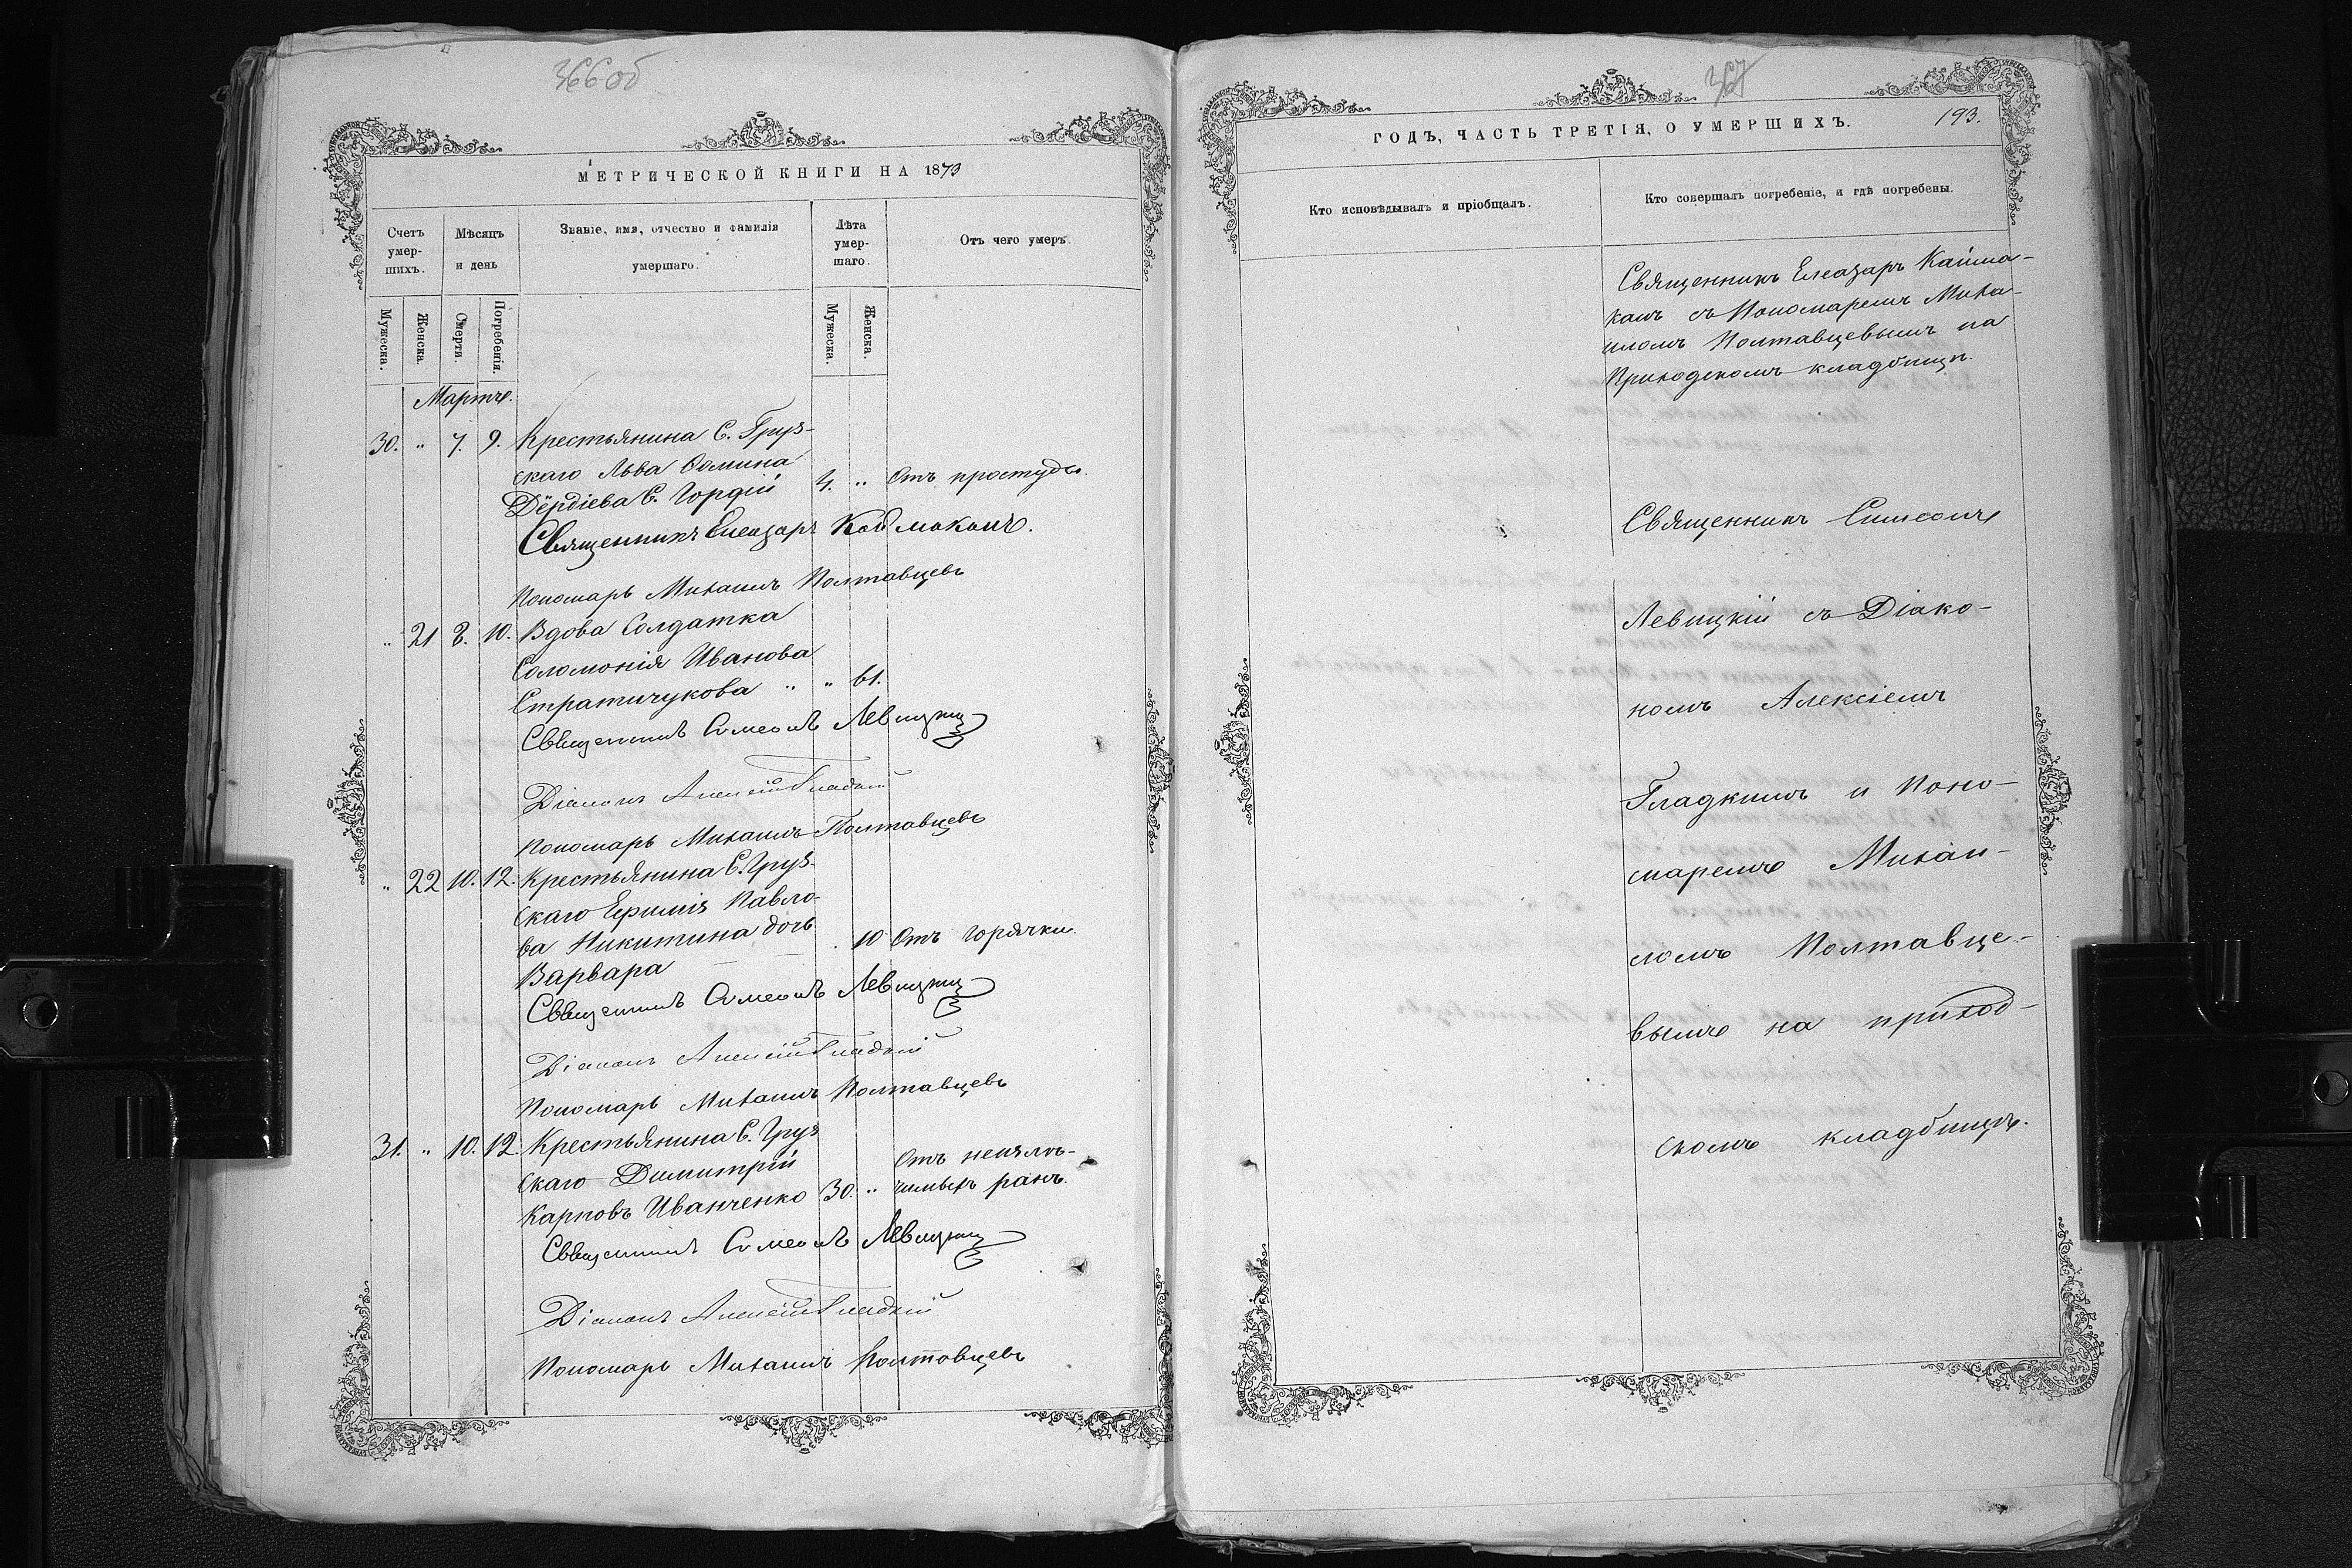 366об
МЕТРИЧЕСКОЙ КНИГИ НА 1873
Счетъ умер-шихъ.
Мѣсяцъ и день
Званіе, имя, отчество и фамилія умершаго.
Лѣта умер-шаго.
Отъ чего умеръ.
Мужеска.
Женска.
Смерти.
Погребенія.
Мужеска.
Женска.
Мартъ.
30. " 7. 9. Крестьянина С. Груз-
скаго Льва Фомина
Дёрдіева С. Гордій 4. " Отъ простуды.
Священникъ Елеазаръ Каймаканъ.
Пономарь Михаилъ Полтавцевъ
" 21 8. 10. Вдова Солдатка
Соломонія Иванова
Стратичукова " " 61.
Священникъ Симеонъ Левицкій
Діаконъ Алексій Гладкій
Пономарь Михаилъ Полтавцевъ
" 22 10. 12. Крестьянина С. Груз-
скаго Ефимія Павло-
ва Никитина дочь
Варвара . 10 Отъ горячки.
Священникъ Симеонъ Левицкій
Діаконъ Алексій Гладкій
Пономарь Михаилъ Полтавцевъ
31. " 10. 12. Крестьянина С. Груз
скаго Димитрій
Карповъ Иванченко 30. " Отъ неизлѣ-
чимыхъ ранъ.
Священникъ Симеонъ Левицкій
Діаконъ Алексій Гладкій
Пономарь Михаилъ Полтавцевъ
367
193.
ГОДЪ, ЧАСТЬ ТРЕТІЯ, О УМЕРШИХЪ.
Кто исповѣдывалъ и пріобщалъ.
Кто совершалъ погребеніе, и гдѣ погребены.
Священникъ Елеазаръ Кайма-
канъ съ Пономаремъ Миха-
иломъ Полтавцевымъ на
Приходскомъ кладбищѣ.
Священникъ Симеонъ
Левицкій съ Діако-
номъ Алексіемъ
Гладкимъ и Поно-
маремъ Михаи-
ломъ Полтавце-
вымъ на приход-
скомъ кладбищѣ.